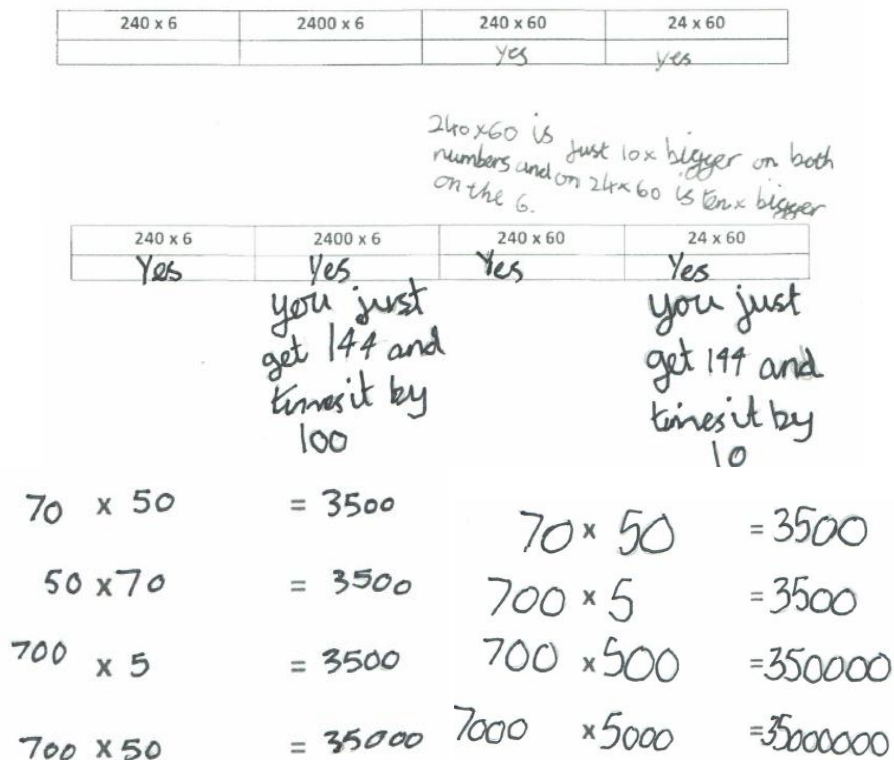 240 x 6 2400 x 6 240 x 60 24 x 60
yes yes
240x60 is just 10x bigger on both
numbers and on 24x60 is ten x bigger
on the 6.
240 x 6 2400 x 6 240 x 60 24 x 60
Yes Yes Yes Yes
you just
get 144 and
times it by
100
you just
get 144 and
times it by
10
70 x 50 = 3500
50 x 70 = 3500
700 x 5 = 3500
700 x 50 = 35000
70 x 50 = 3500
700 x 5 = 3500
700 x 500 = 350000
7000 x 5000 = 35000000